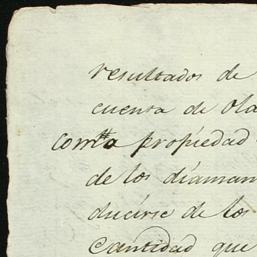 resultados de
cuenta de Ola
propiedad
de los diaman
ducirse de los
Cantidad que